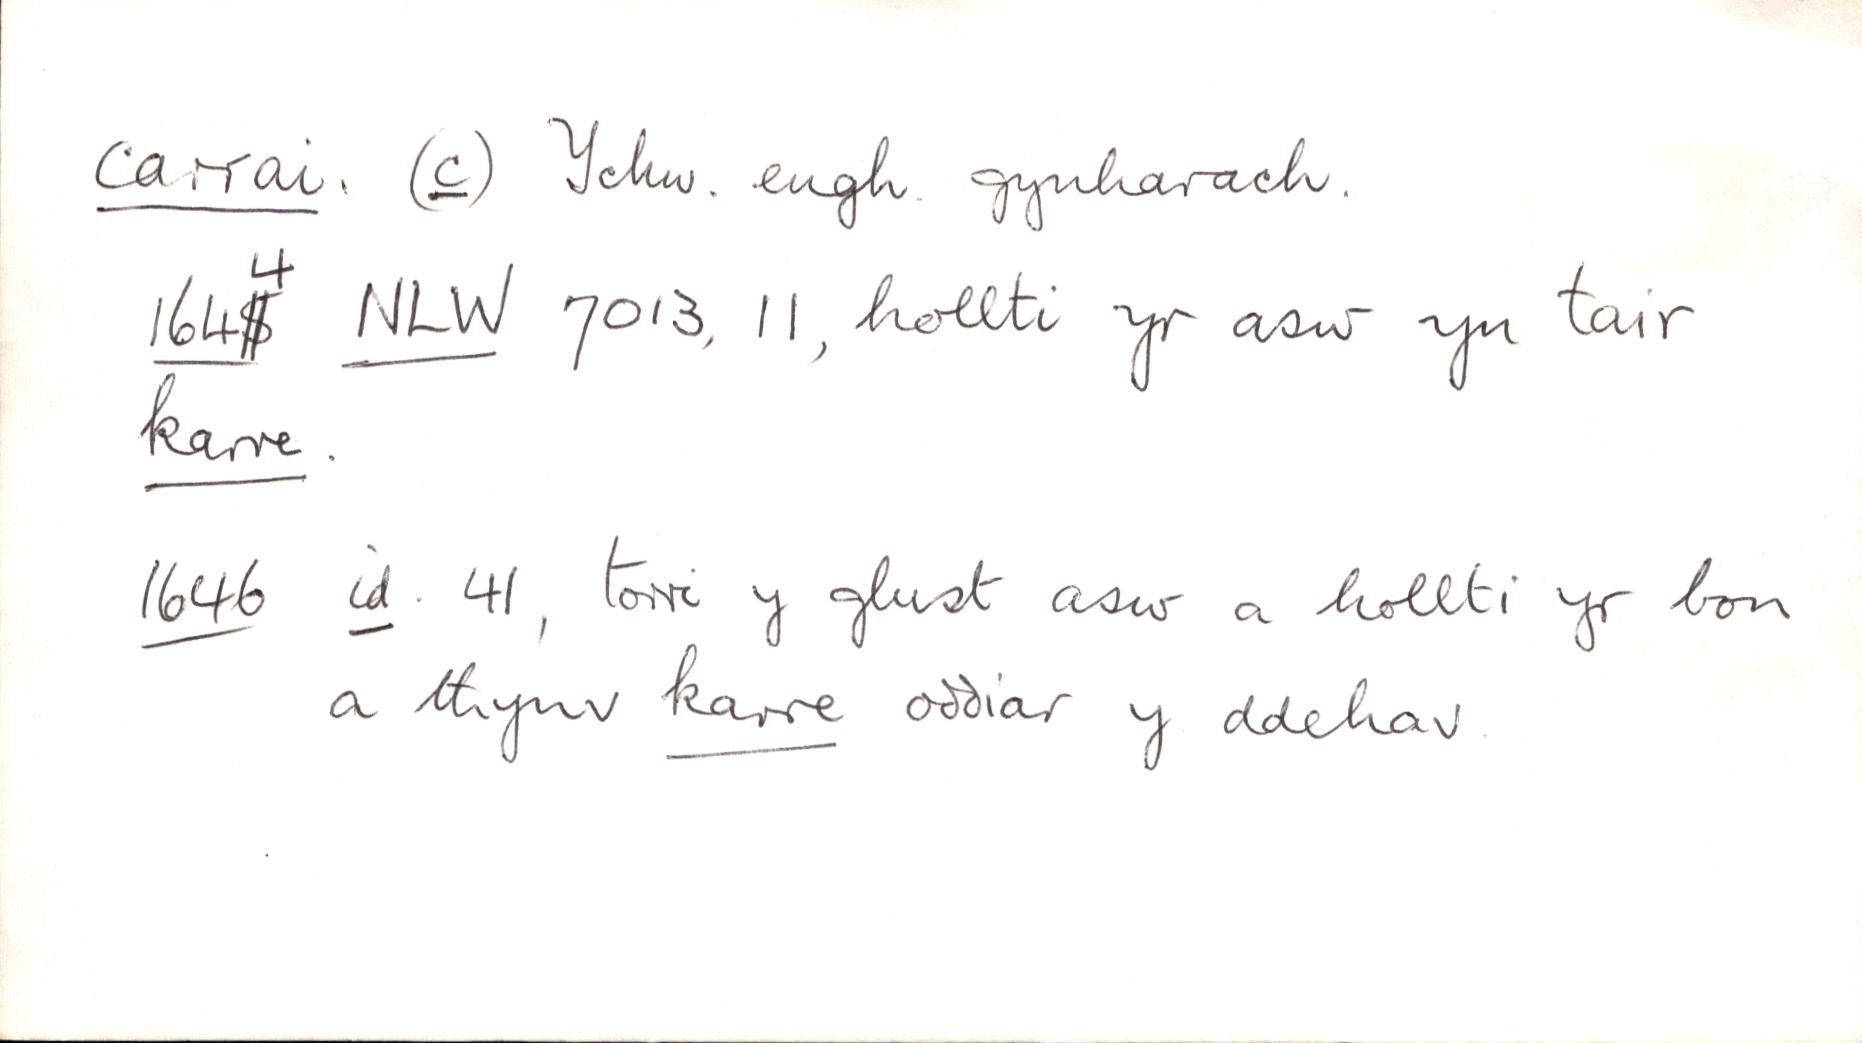 carrai. (c) Ychw. engh. gynharach.
1644 NLW 7013, 11, hollti yr asw yn tair
karre.
1646 id. 41, torri y glust asw a hollti yr bon
a thynv karre oddiar y ddehav.